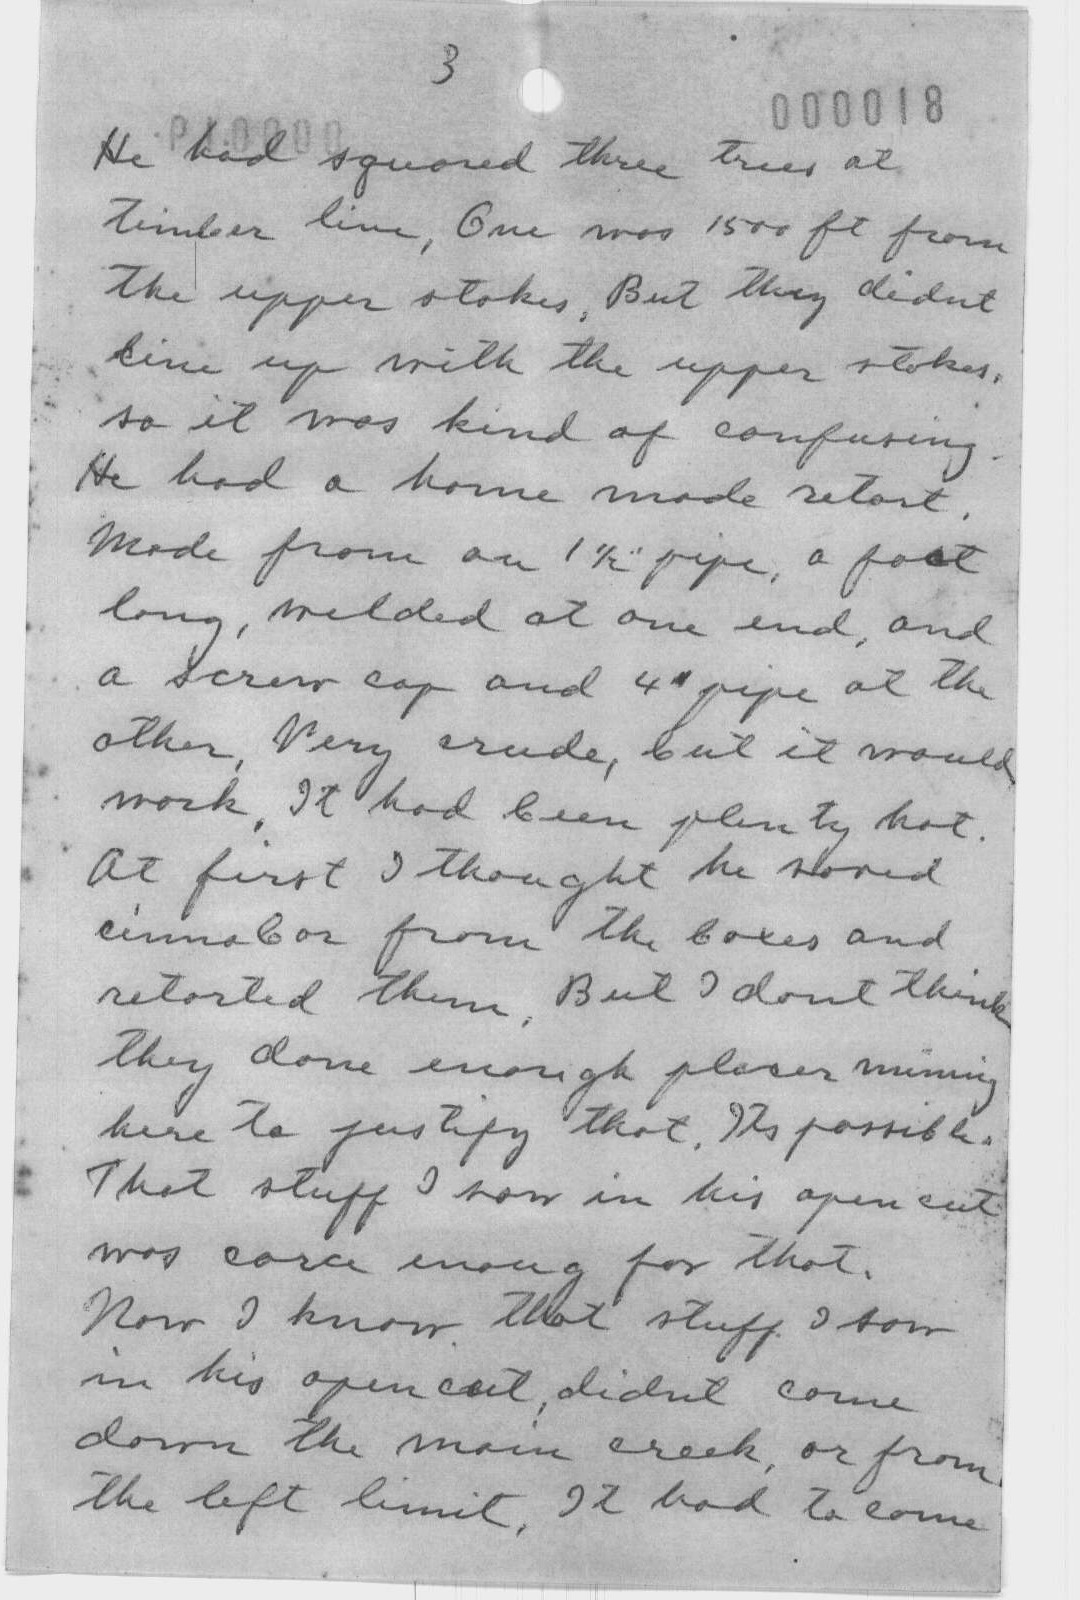 3
000018
He had squared three trees at
timber line, One was 1500 ft from
the upper stakes, But they didnt
line up with the upper stakes.
so it was kind of confusing.
He had a home made retort.
Made from an 1 1/2" pipe, a foot
long, welded at one end, and
a screw cap and 4" pipe at the
other, Very crude, but it would
work, It had been plenty hot.
At first I thought he saved
cinnabar from the boxes and
retorted them, But I dont think
they done enough placer mining
here to justify that. Its possible.
That stuff I saw in his open cut
was corce enoug for that.
Now I know that stuff I saw
in his open cut, didnt come
down the main creek, or from
the left limit, It had to come